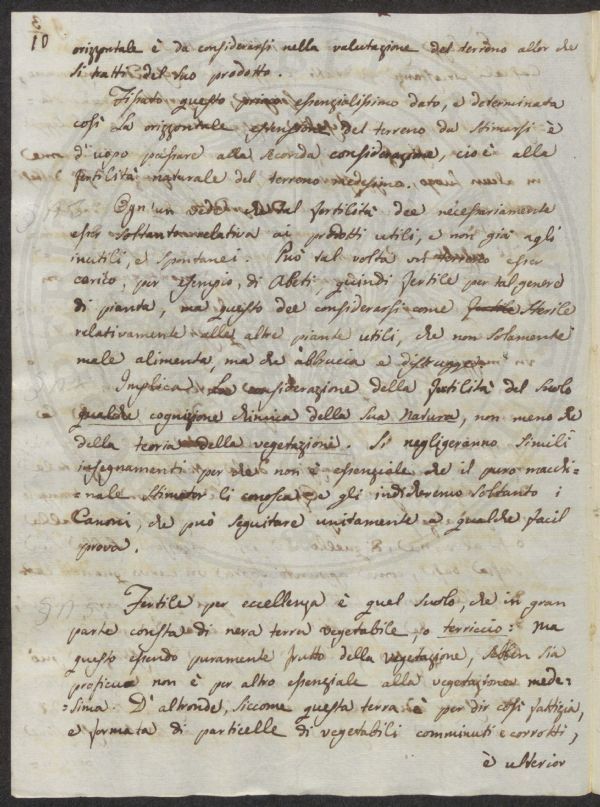 10
orizzontale è da considerarsi nella valutazione del terreno allor che
si tratti del suo prodotto.
Fissato questo primo essenzialissimo dato, e determinata
così la orizzontale estensione del terreno da stimarsi è
d'uopo passare alla seconda considerazione, cioè alla
fertilità naturale del terreno medesimo.
Ogn'un vede che tal fertilità dee necessariamente
esser soltanto relativa ai prodotti utili, e non già agli
inutili, e spontanei. Può tal volta un terreno esser
carico, per esempio, di Abeti, quindi fertile per tal genere
di pianta, ma questo dee considerarsi come sterile
relativamente alle altre piante utili, che non solamente
male alimenta, ma che abbruccia e distrugge.
Implica la considerazione della fertilità del suolo
qualche cognizione chimica della sua natura, non meno che
della teoria della vegetazione. Si negligeranno simili
insegnamenti per che non è essenziale che il puro macchi=
=nale stimator li conosca, e gli indicheremo soltanto i
Canoni, che può seguitare unitamente a qualche facil
prova.
Fertile per eccellenza è quel suolo, che in gran
parte consta di nera terra vegetabile, o terriccio: ma
questo essendo puramente frutto della vegetazione, sebben sia
proficuo non è per altro essenziale alla vegetazione mede=
=sima. D'altronde, siccome questa terra è per dir così fattizia,
e formata di particelle di vegetabili comminuti e corrotti,
è ulterior